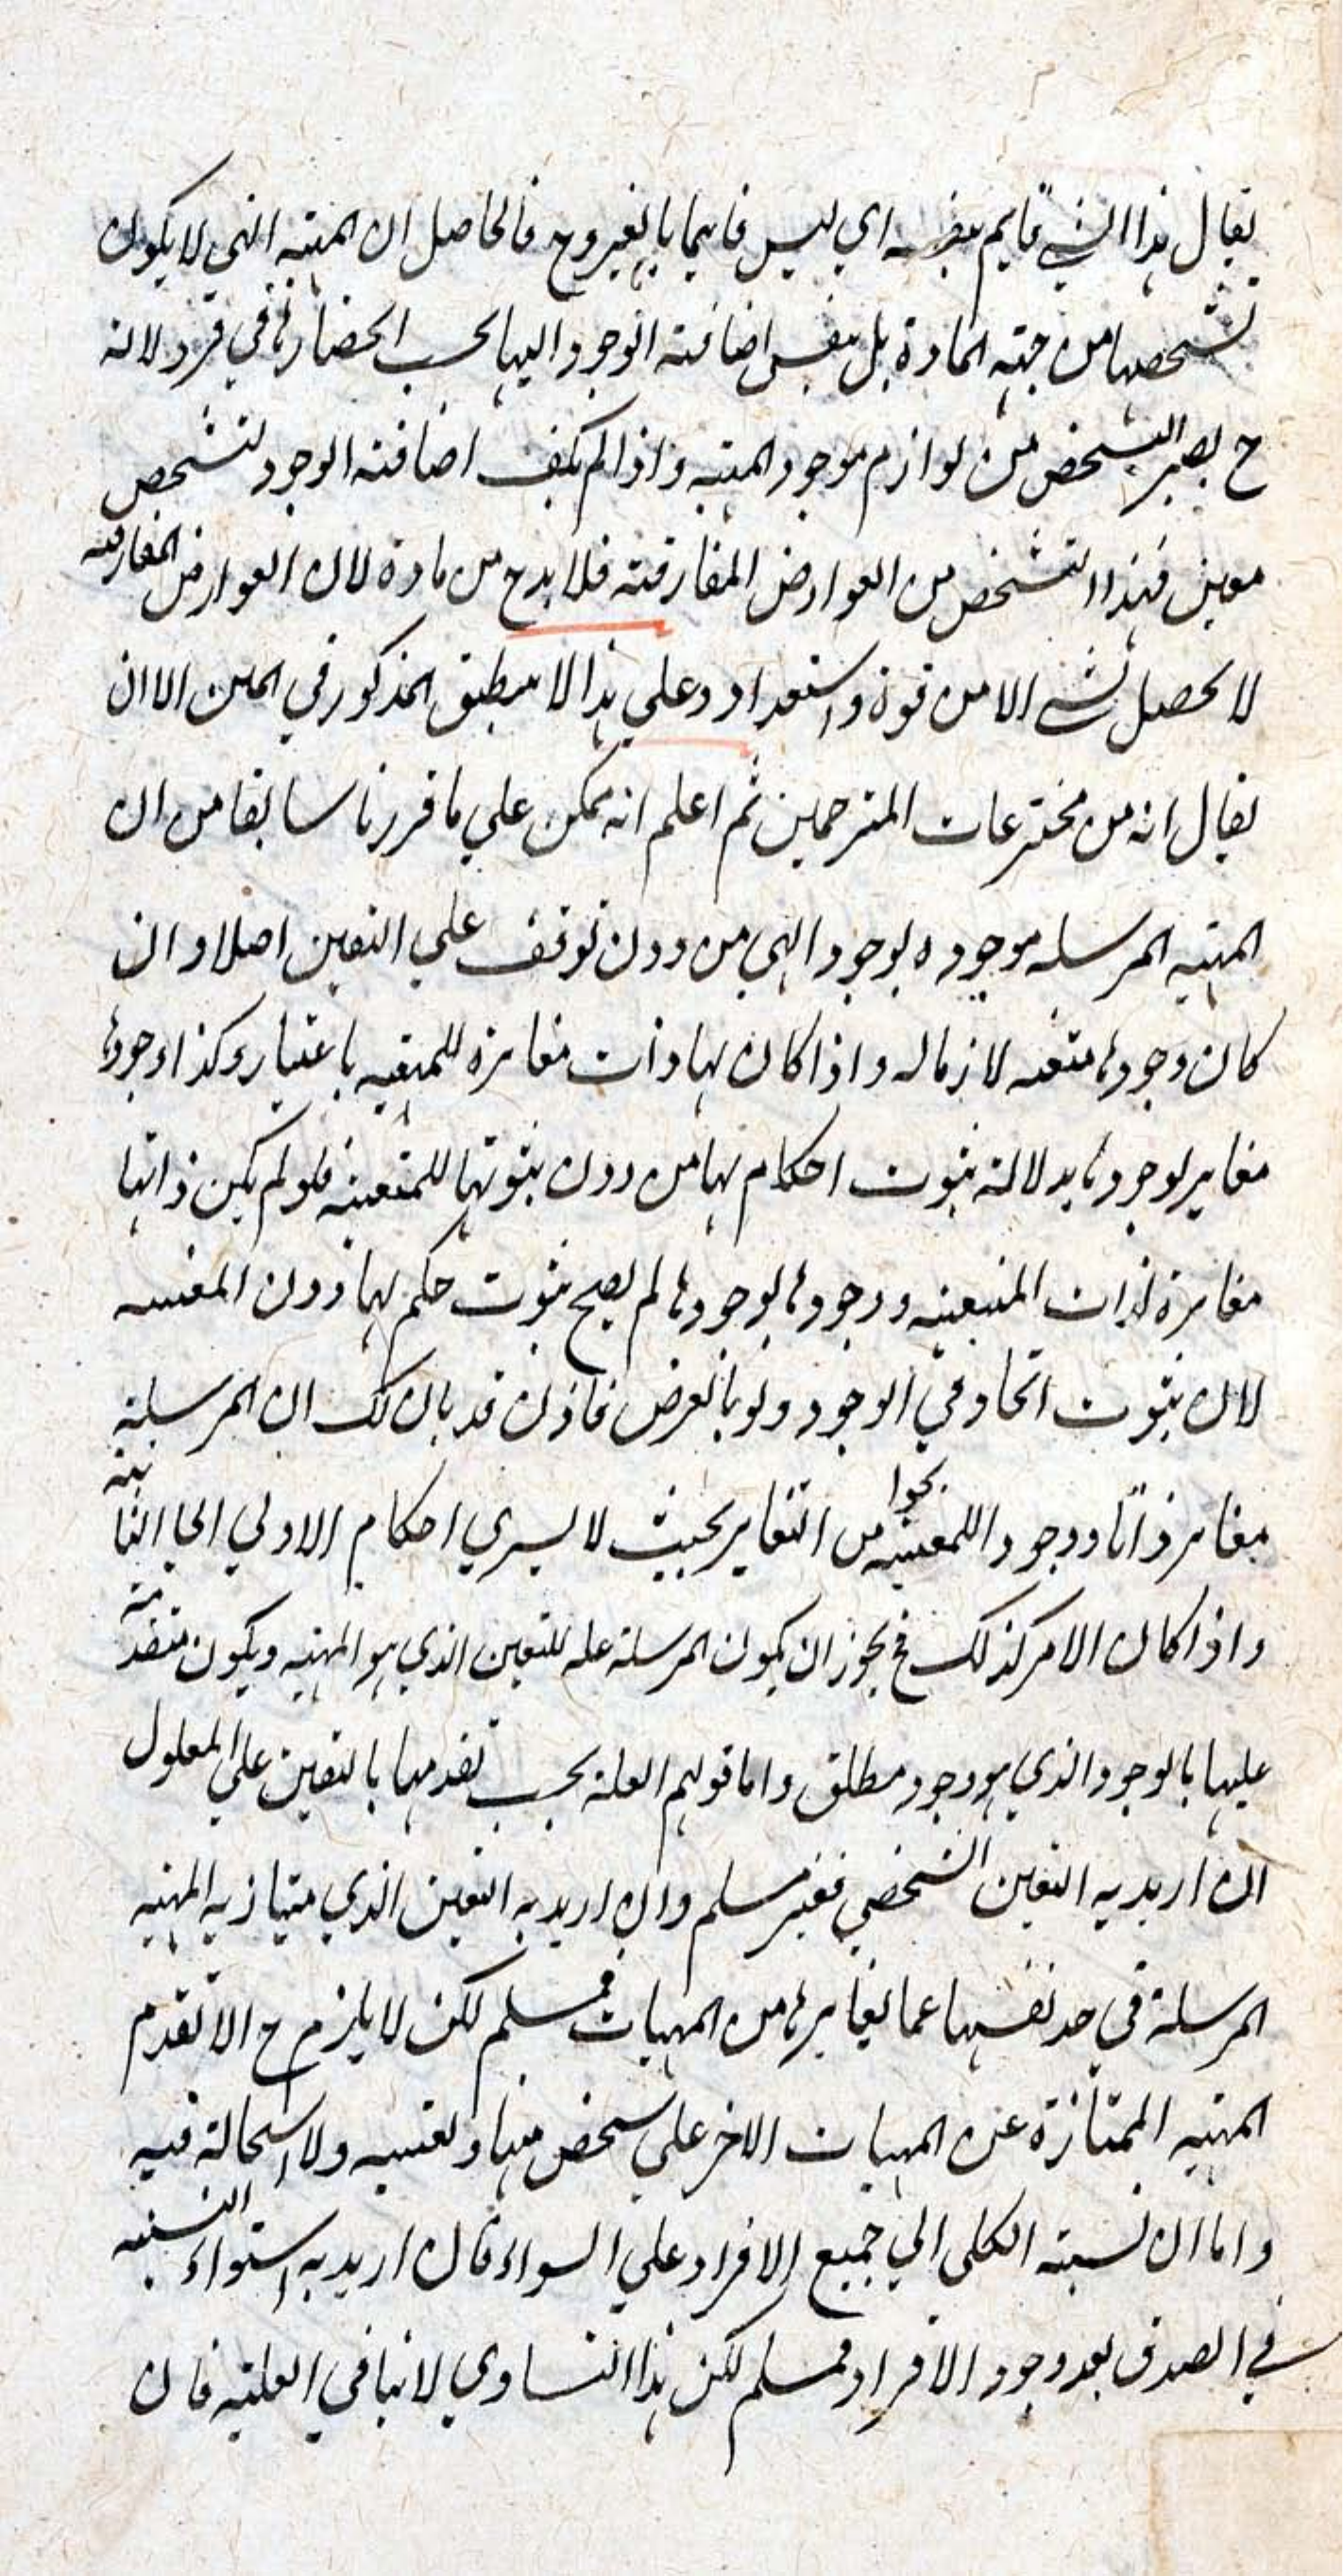 يقال هذا الشي قايم بنفسه اي ليس قايما بالغير وح فالحاصل ان المهية التي لا يكون
تشخصها من جهة المادة بل بنفس اضافة الوجود اليها يجب انحصارها في فرد لانه
ح يصير التشخص من لوازم موجود المهية واذا لم يكف اضافة الوجود لتشخص
معين فهذا التشخص من العوارض المفارقة فلا بد ح من مادة لان العوارض المفارقة
لا يحصل لشي الا من قوة واستعداد وعلي هذا لا ينطبق المذكور في المتن الا ان
يقال انه من مخترعات المترجمين ثم اعلم انه يمكن علي ما قررنا سابقا من ان
المهية المرسله موجوده بوجود الهي من دون توقف علي التعين اصلا وان
كان وجودها متعينه لازما له واذا كان لها ذات مغايرة للمتعينه باعتبار وكذا وجودها
مغاير لوجودها بدلالة ثبوت احكام لها من دون ثبوتها للمتعينه فلو لم يكن ذاتها
مغايرة لذات المتعينه ووجودها لوجودها لم يصح ثبوت حكم لها دون المتعينه
لان ثبوت اتحاد في الوجود ولو بالعرض فاذن قد بان لك ان المرسلة
مغاير ذاتا ووجودا للمتعينه نحوا من التغاير بحيث لا يسري احكام الاولي الي الثانية
واذا كان الامر كذلك فح يجوز ان يكون المرسلة علة للتعين الذي هو المهية ويكون متقدمة
عليها بالوجود الذي هو وجود مطلق واما قولهم العلة يجب تقدمها بالتعين علي المعلول
ان اريد به التعين الشخصي فغير مسلم وان اريد به التعين الذي يمتاز به المهية
المرسلة في حد نفسها عما يغايرها من المهيات فمسلم لكن لا يلزم ح الا تقدم
المهية الممتازة عن المهيات الاخر علي شخص منها وتعينه ولا استحالة فيه
واما ان نسبة الكلي الي جميع الافراد علي السواء فان اريد به استواء النسبة
في الصدق بعد وجود الافراد فمسلم لكن هذا التساوي لا ينافي العلية فان